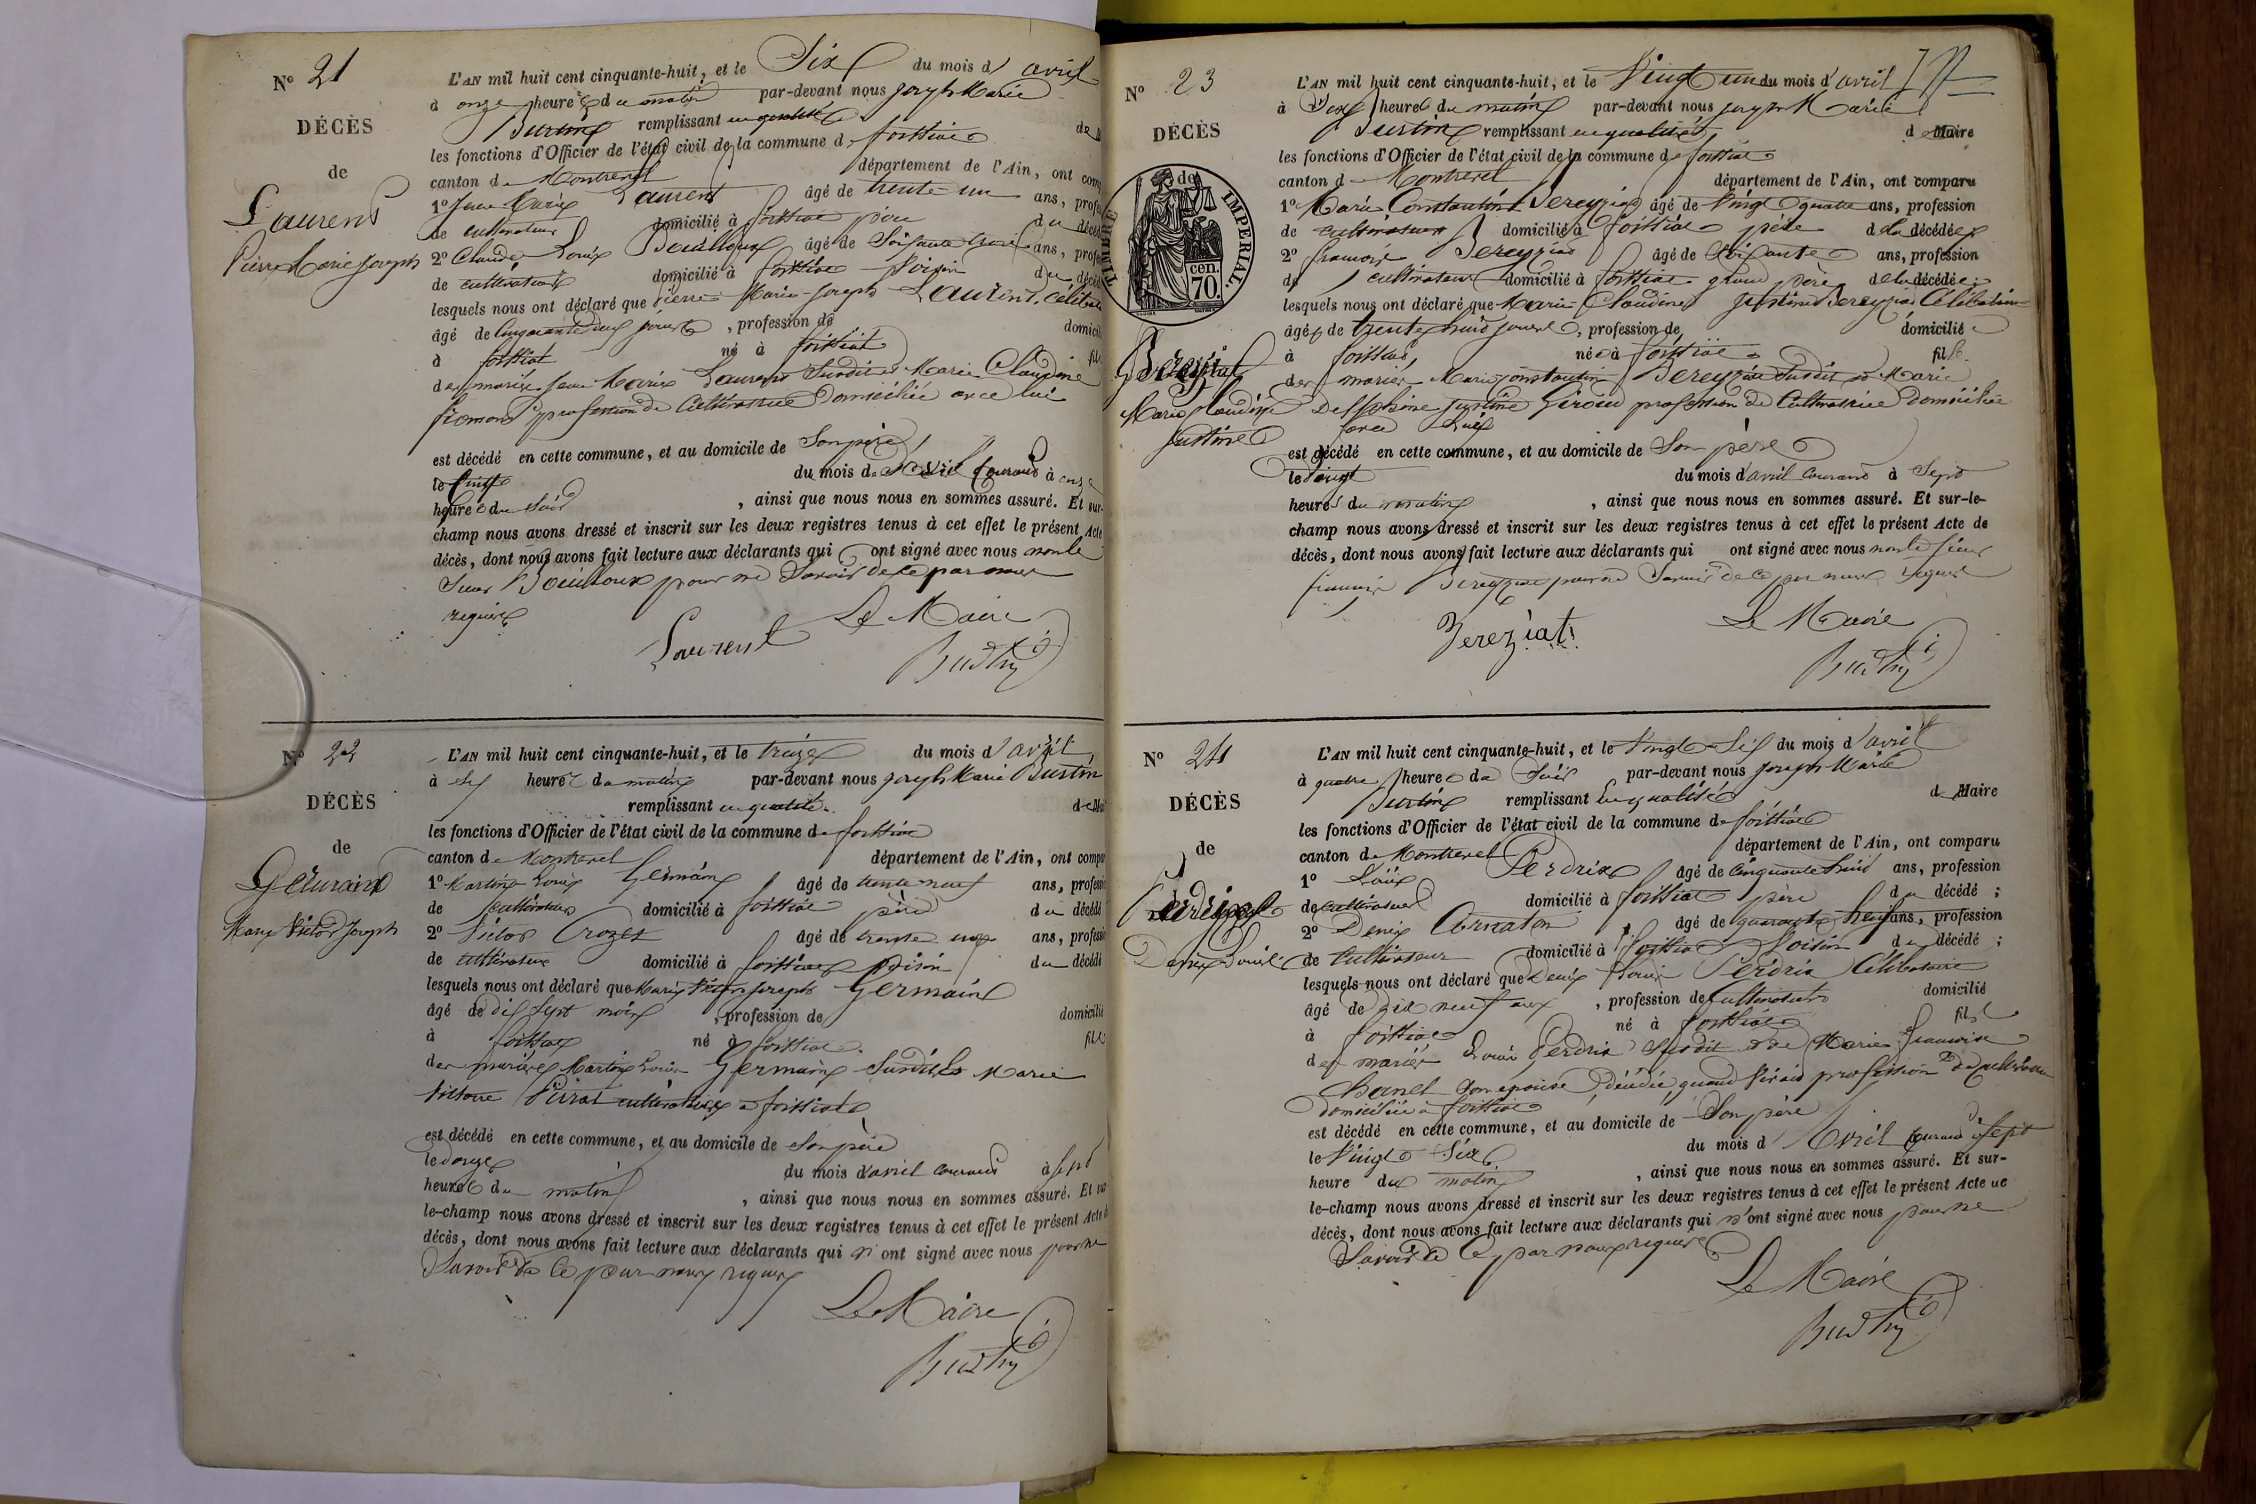 N° 21
DÉCÈS
de
Laurent
Pierre Marie Joseph
L'AN mil huit cent cinquante-huit, et le Six du mois d'avril
à onze heures du matin par-devant nous joseph Marie
Burtin remplissant en qualité de M
les fonctions d'Officier de l'état civil de la commune de foissiat
canton de Montrevel département de l'Ain, ont comp
1° Jean Marie Laurent âgé de trente-un ans, profes
de cultivateur domicilié à foissiat père du décéd
2° Claude Louis Bouilloux âgé de Soixante trois ans, profes
de cultivateur domicilié à foissiat Voisin du décéd
lesquels nous ont déclaré que Pierre Marie Joseph Laurent, Céliba
âgé de Cinquante deux jours, profession de domicil
à foissiat né à foissiat fil
des mariés Jean Marie Laurent Susdit et Marie Claudine
fromont profession de Cultivatrice Domiciliée avec lui
est décédé en cette commune, et au domicile de Son père
le Cinq du mois d'avril Courant à onze
heures du Soir, ainsi que nous nous en sommes assuré. Et sur-
champ nous avons dressé et inscrit sur les deux registres tenus à cet effet le présent Acte
décès, dont nous avons fait lecture aux déclarants qui ont signé avec nous non le
Sieur Bouilloux pour ne Savoir de ce par nous
requis
Le Maire
Laurent
Burtin
N° 22
DÉCÈS
de
Germain
Marie Victor Joseph
L'AN mil huit cent cinquante-huit, et le treize du mois d'avril
à Six heures du matin par-devant nous joseph Marie Burtin
remplissant en qualité de Mai
les fonctions d'Officier de l'état civil de la commune de foissiat
canton de Montrevel département de l'Ain, ont compa
1° Martin Louis Germain âgé de trente neuf ans, professi
de cultivateur domicilié à foissiat père du décédé
2° Victor Crozet âgé de trente ans, professi
de cultivateur domicilié à foissiat Voisin du décédé
lesquels nous ont déclaré que Marie Victor Joseph Germain
âgé de dix Sept mois, profession de domicilié
à foissiat né à foissiat fils
des mariés Martin Louis Germain Susdit et Marie
Victoire Pirat cultivatrice à foissiat
est décédé en cette commune, et au domicile de Son père
le douze du mois d'avril courant à Sept
heures du matin, ainsi que nous nous en sommes assuré. Et sur
le-champ nous avons dressé et inscrit sur les deux registres tenus à cet effet le présent Acte d
décès, dont nous avons fait lecture aux déclarants qui n'ont signé avec nous pour ne
Savoir de ce par nous requis
Le Maire
Burtin
N° 23
DÉCÈS
de
TIMBRE IMPÉRIAL
70 cen.
Bereyziat
Marie Claudine
Justine
L'AN mil huit cent cinquante-huit, et le Vingt un du mois d'avril
à Dix heures du matin par-devant nous joseph Marie
Burtin remplissant en qualité de Maire
les fonctions d'Officier de l'état civil de la commune de foissiat
canton de Montrevel département de l'Ain, ont comparu
1° Marie Constantin Bereyziat âgé de Vingt quatre ans, profession
de cultivateur domicilié à foissiat père de la décédée
2° françois Bereyziat âgé de Soixante ans, profession
de cultivateur domicilié à foissiat grand père de la décédée;
lesquels nous ont déclaré que Marie Claudine Justine Bereyziat Célibataire
âgée de trente huit jours, profession de domicilié
à foissiat, née à foissiat fille
des mariés Marie Constantin Bereyziat Susdit et Marie
Delphine Justine Giroud profession de Cultivatrice Domiciliée
avec lui
est décédé en cette commune, et au domicile de Son père
le vingt du mois d'avril courant à Sept
heures du matin, ainsi que nous nous en sommes assuré. Et sur-le-
champ nous avons dressé et inscrit sur les deux registres tenus à cet effet le présent Acte de
décès, dont nous avons fait lecture aux déclarants qui ont signé avec nous non le Sieur
françois Bereyziat pour ne Savoir de ce par nous requis
Le Maire
Bereziat
Burtin
N° 24
DÉCÈS
de
Perdrix
Denis Louis
L'AN mil huit cent cinquante-huit, et le Vingt-Six du mois d'avril
à quatre heures du Soir par-devant nous Joseph Marie
Burtin remplissant en qualité de Maire
les fonctions d'Officier de l'état civil de la commune de foissiat
canton de Montrevel département de l'Ain, ont comparu
1° Louis Perdrix âgé de cinquante huit ans, profession
de cultivateur domicilié à foissiat père du décédé;
2° Denis Carnaton âgé de quarante neuf ans, profession
de Cultivateur domicilié à foissiat Voisin du décédé;
lesquels nous ont déclaré que Denis Louis Perdrix Célibataire
âgé de dix neuf ans, profession de Cultivateur domicilié
à foissiat né à foissiat fils
des mariés Louis Perdrix Susdit et de Marie françoise
Son épouse décédée quand Vivait profession de Cultivatrice
domiciliée à foissiat
est décédé en cette commune, et au domicile de Son père
le Vingt Six du mois d'Avril Courant à Sept
heure du matin, ainsi que nous nous en sommes assuré. Et sur-
le-champ nous avons dressé et inscrit sur les deux registres tenus à cet effet le présent Acte de
décès, dont nous avons fait lecture aux déclarants qui n'ont signé avec nous pour ne
Savoir de ce par nous requis
Le Maire
Burtin